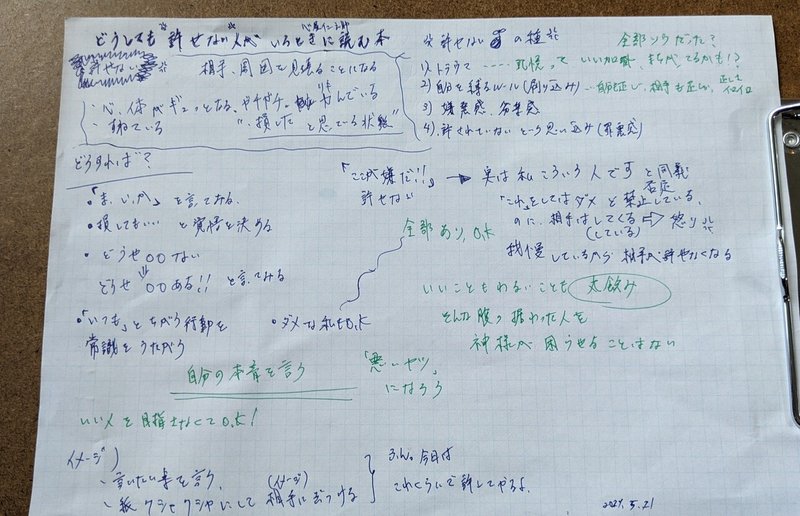 心屋仁之助
どうしても"許せない"人がいるときに読む本
"許せない"
相手、周囲を見張ることになる
・心、体がギュッとなる、ガチガチ。悩んでいる
・すねている "損した"と思っている状態
どうすれば?
・「ま、いいか」を言ってみる
・損してもいい と覚悟を決める
・どうせ〇〇ない
どうせ〇〇ある!! と言ってみる
・「いつも」とちがう行動を
常識をうたがう
・ダメな私もO.K
全部あり、O.K
自分の本音を言う
「悪いヤツ」
になろう
いい人を目指さなくてO.K!
イメージ)
・言いたい事を言う、
・紙クシャクシャにして 相手にぶつける
(イメージ)
ふん。今日は
これくらいで許してやるよ。
許せない の種
全部ソウだった?
1) トラウマ ……記憶って いい加減、まちがってるかも!?
2) 自分を縛るルール(刷り込み)…自分も正しい、相手も正しい、正しさイロイロ
3) 嫌悪感、劣等感
4) 許されていない という思い込み(罪悪感)
「ここが嫌だ!!」 → 実は私こういう人です と同義
許せない
否定
「これ」をしてはダメ と禁止している、
のに、相手はしてくる ⇒ 怒り
(している)
我慢しているから 相手が許せなくなる
いいことも わるいことも 丸飲み
そんな腹の据わった人を
神様が困らせることはない
2024.5.21